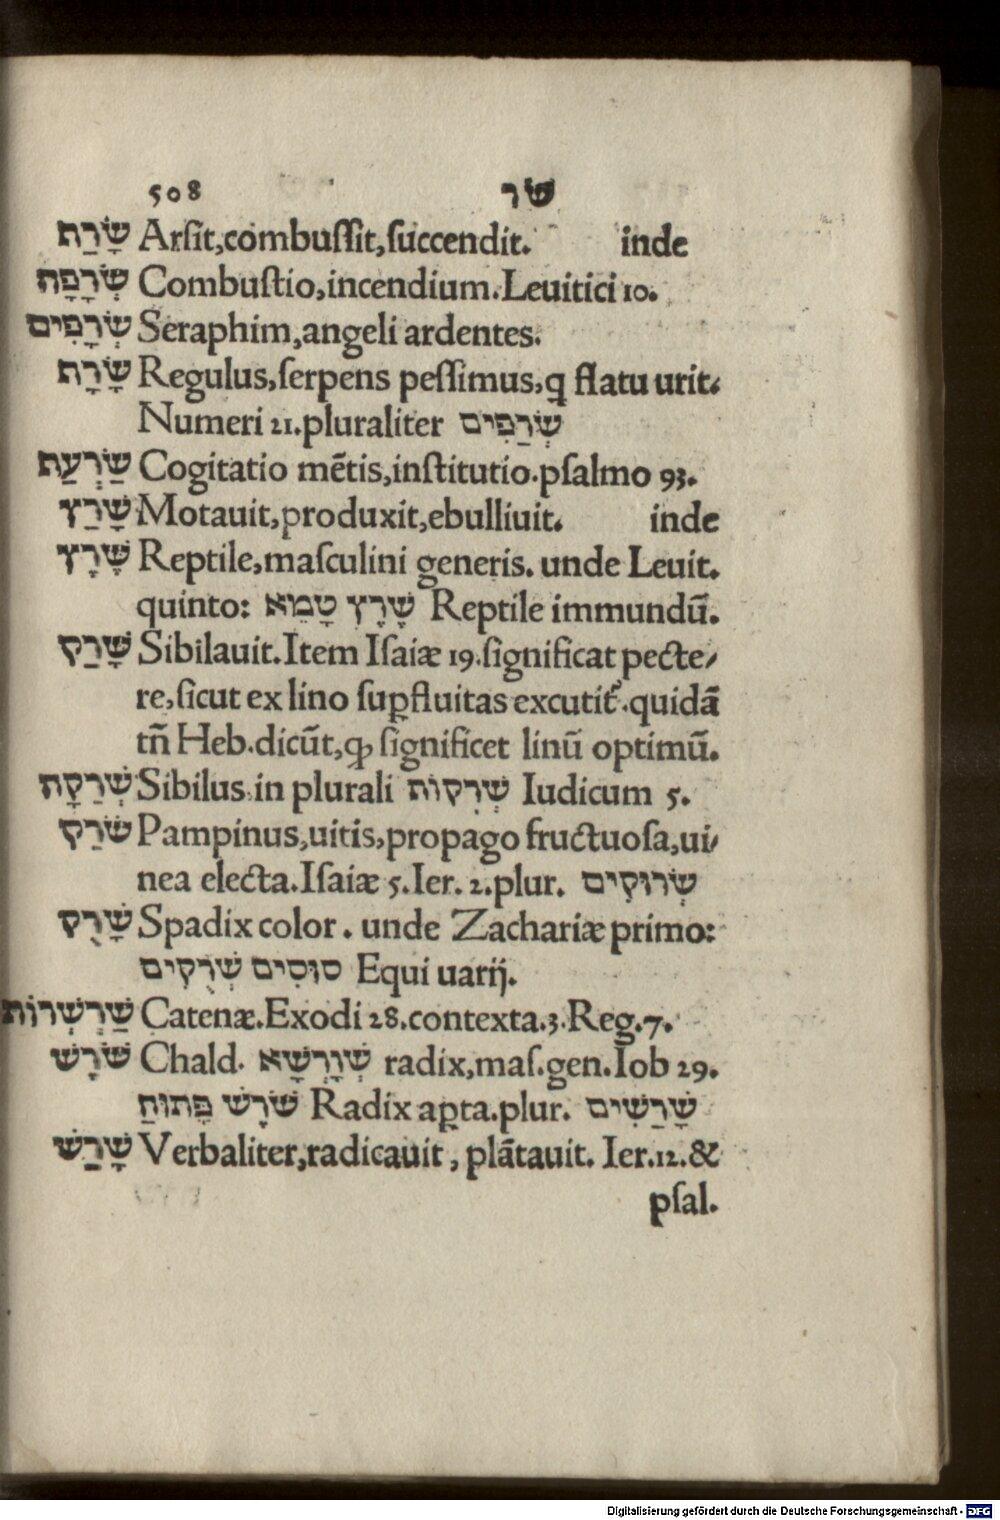 508 שׂר
שָׂרַף Arſit,combuſſit,ſuccendit. inde
שְׂרֵפָה Combuſtio,incendium.Leuitici 10.
שְׂרָפִים Seraphim,angeli ardentes.
שָׂרָף Regulus,ſerpens peſſimus,ꝗ flatu urit.
Numeri 21.pluraliter שְׂרַפִים
שַׂרְעַף Cogitatio mētis,inſtitutio.pſalmo 93.
שָׁרַץ Motauit,produxit,ebulliuit. inde
שֶׁרֶץ Reptile,maſculini generis. unde Leuit.
quinto: שֶׁרֶץ טָמֵא Reptile immundū.
שָׁרַק Sibilauit.Item Iſaiæ 19.ſignificat pecte/
re,ſicut ex lino ſuꝑfluitas excutit᷑.quidā
tn̄ Heb.dicūt,ꝙ ſignificet linū optimū.
שְׁרֵקָה Sibilus.in plurali שְׁרִקוֹת Iudicum 5.
שׂרֵק Pampinus,uitis,propago fructuoſa,ui/
nea electa.Iſaiæ 5.Ier. 2.plur. שְׂרוּקִים
שָׂרֻק Spadix color. unde Zachariæ primo:
סוּסִים שְׂרֻקִים Equi uarij.
שַׁרְשְׁרוֹת Catenæ.Exodi 28.contexta.3.Reg.7.
שׁרֶשׁ Chald. שָׁוְרְשָׁא radix,maſ.gen.Iob 29.
שׁרֶשׁ פָּתוּחַ Radix aꝑta.plur. שָׁרָשִׁים
שָׁרַשׁ Verbaliter,radicauit, plātauit. Ier.12.&
pſal.
Digitalisierung gefördert durch die Deutsche Forschungsgemeinschaft - DFG